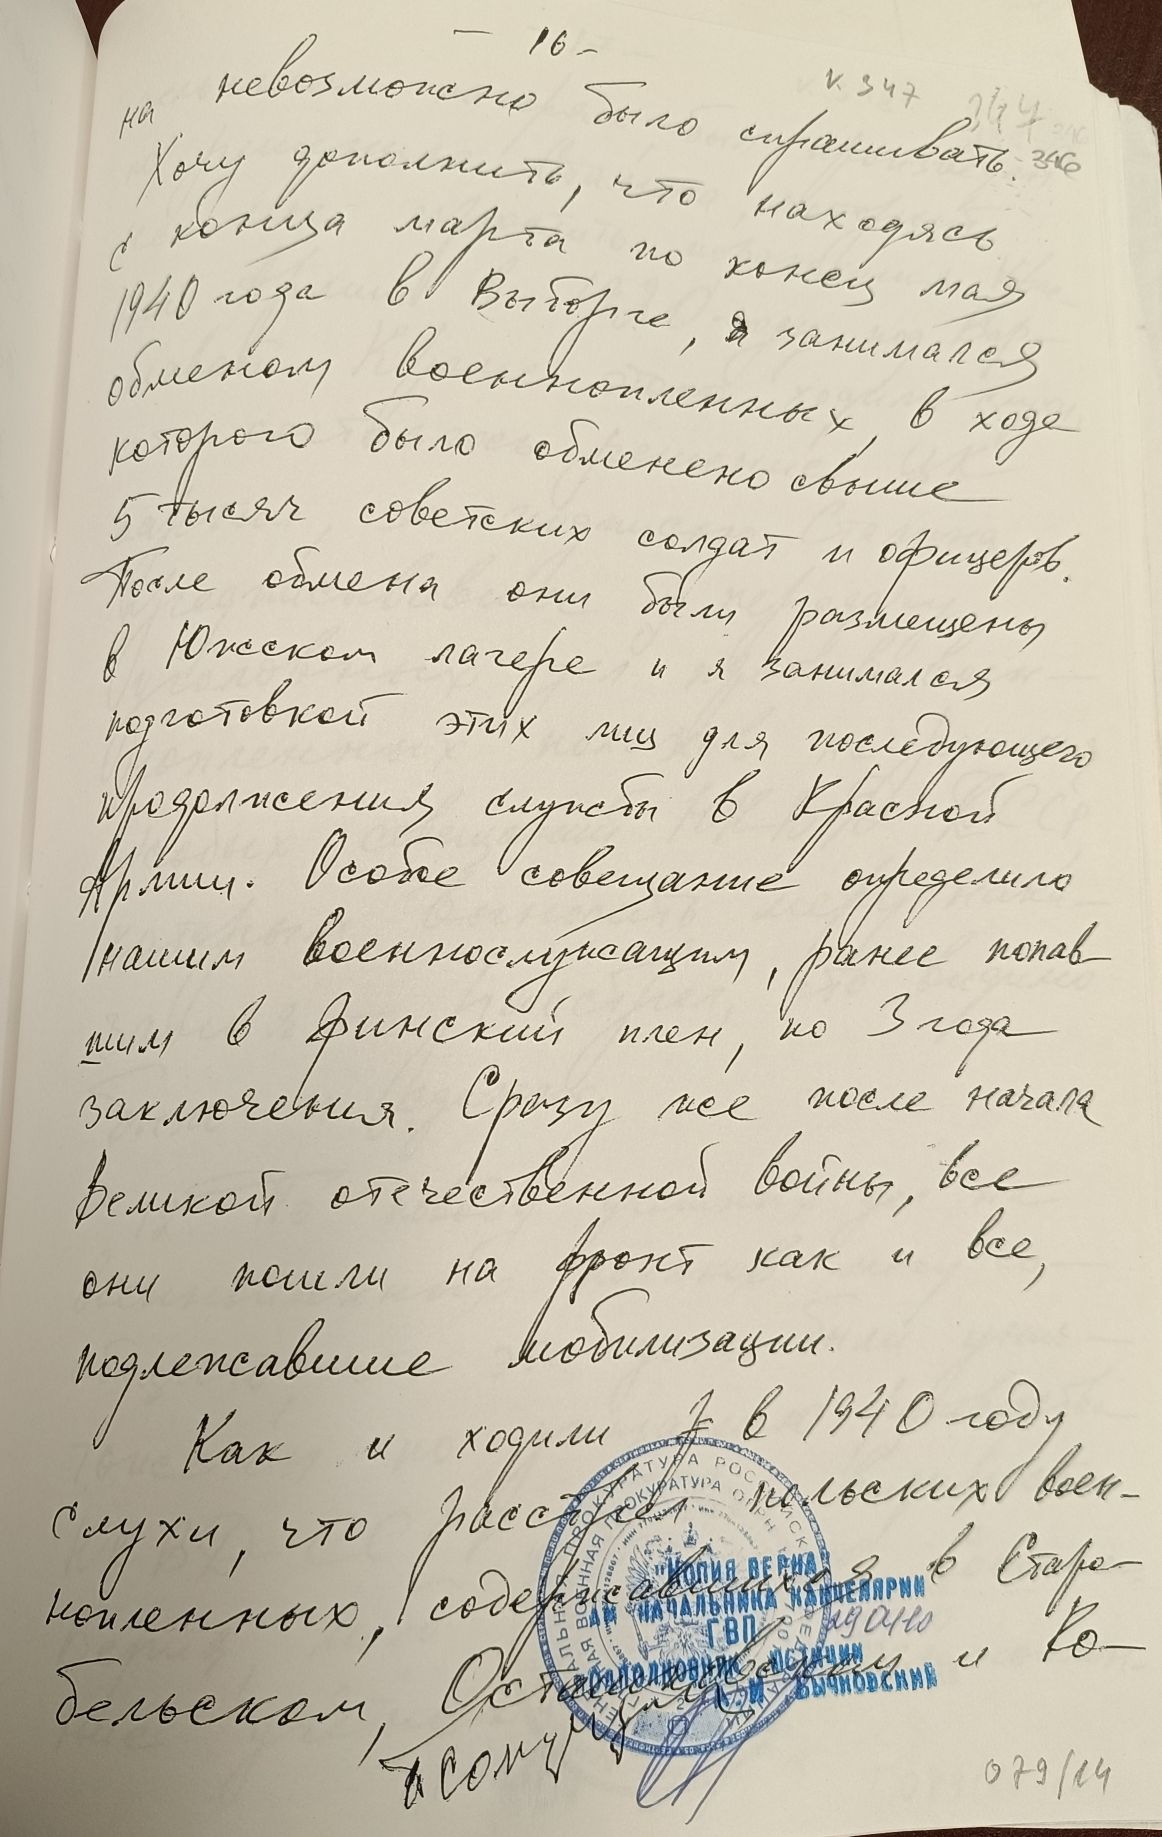 - 16 -
к. 347
346
на невозможно было спрашивать.
Хочу дополнить, что находясь
с конца марта по конец мая
1940 года в Выборге, я занимался
обменом военнопленных, в ходе
которого было обменено свыше
5 тысяч советских солдат и офицеров.
После обмена они были размещены
в Южском лагере и я занимался
подготовкой этих лиц для последующего
продолжения службы в Красной
Армии. Особое совещание определило
нашим военнослужащим, ранее попав-
шим в финский плен, по 3 года
заключения. Сразу же после начала
Великой отечественной войны, все
они пошли на фронт как и все,
подлежавшие мобилизации.
Как и ходили в 1940 году
слухи, что расстрел польских воен-
нопленных, содержавшихся в Старо-
бельском, Осташковском и Ко-
"КОПИЯ ВЕРНА"
НАЧАЛЬНИКА КАНЦЕЛЯРИИ
ГВП
ПОДПОЛКОВНИК ЮСТИЦИИ
БЫЧКОВСКИЙ
079/14